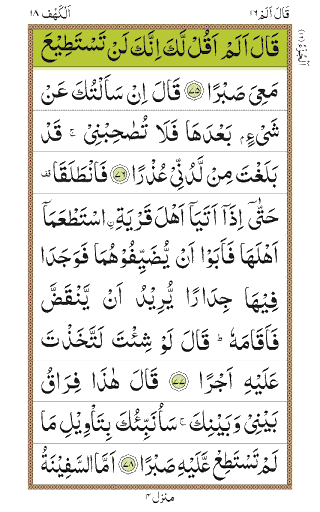 قَالَ اَلَمْ ١٦
اَلْكَهْف ١٨
قَالَ اَلَمْ اَقُلْ لَّكَ اِنَّكَ لَنْ تَسْتَطِيْعَ
مَعِىَ صَبْرًا ﴿۷۵﴾ قَالَ اِنْ سَاَلْتُكَ عَنْ
شَىْءٍۭ بَعْدَهَا فَلَا تُصٰحِبْنِىْ ۚ قَدْ
بَلَغْتَ مِنْ لَّدُنِّىْ عُذْرًا ﴿۷۶﴾ فَانْطَلَقَا ۥ
حَتّٰٓى اِذَاۤ اَتَيَاۤ اَهْلَ قَرْيَةِ ۨاسْتَطْعَمَاۤ
اَهْلَهَا فَاَبَوْا اَنْ يُّضَيِّفُوْهُمَا فَوَجَدَا
فِيْهَا جِدَارًا يُّرِيْدُ اَنْ يَّنْقَضَّ
فَاَقَامَهٗ ؕ قَالَ لَوْ شِئْتَ لَتَّخَذْتَ
عَلَيْهِ اَجْرًا ﴿۷۷﴾ قَالَ هٰذَا فِرَاقُ
بَيْنِىْ وَبَيْنِكَ ۚ سَاُنَبِّئُكَ بِتَاْوِيْلِ مَا
لَمْ تَسْتَطِعْ عَّلَيْهِ صَبْرًا ﴿۷۸﴾ اَمَّا السَّفِيْنَةُ
منزل ۴